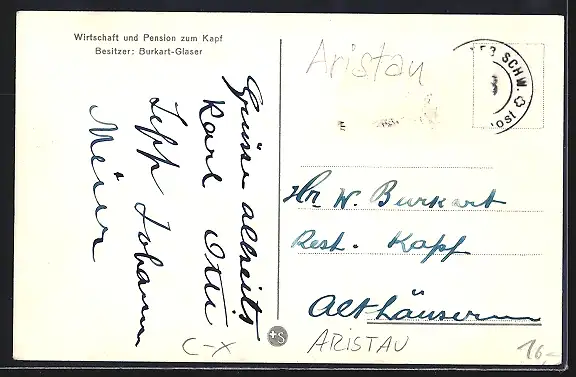 Wirtschaft und Pension zum Kapf
Besitzer: Burkart-Glaser
Aristau
SCHW.
Grüsse allseits
Karl Otti
Sepp Johann
Meier
Hr. W. Burkart
Rest. Kapf
Althäusern
+S
C-X
ARISTAU
16,-